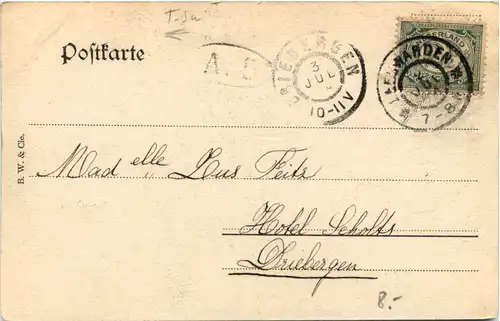 Postkarte
DRIEBERGEN
3
JUL
10-11V
NEDERLAND
LEEUWARDEN
JUL
7-8
B. W. & Cie.
Madelle Zus Feitz
Hotel Scholts
Driebergen
8.-